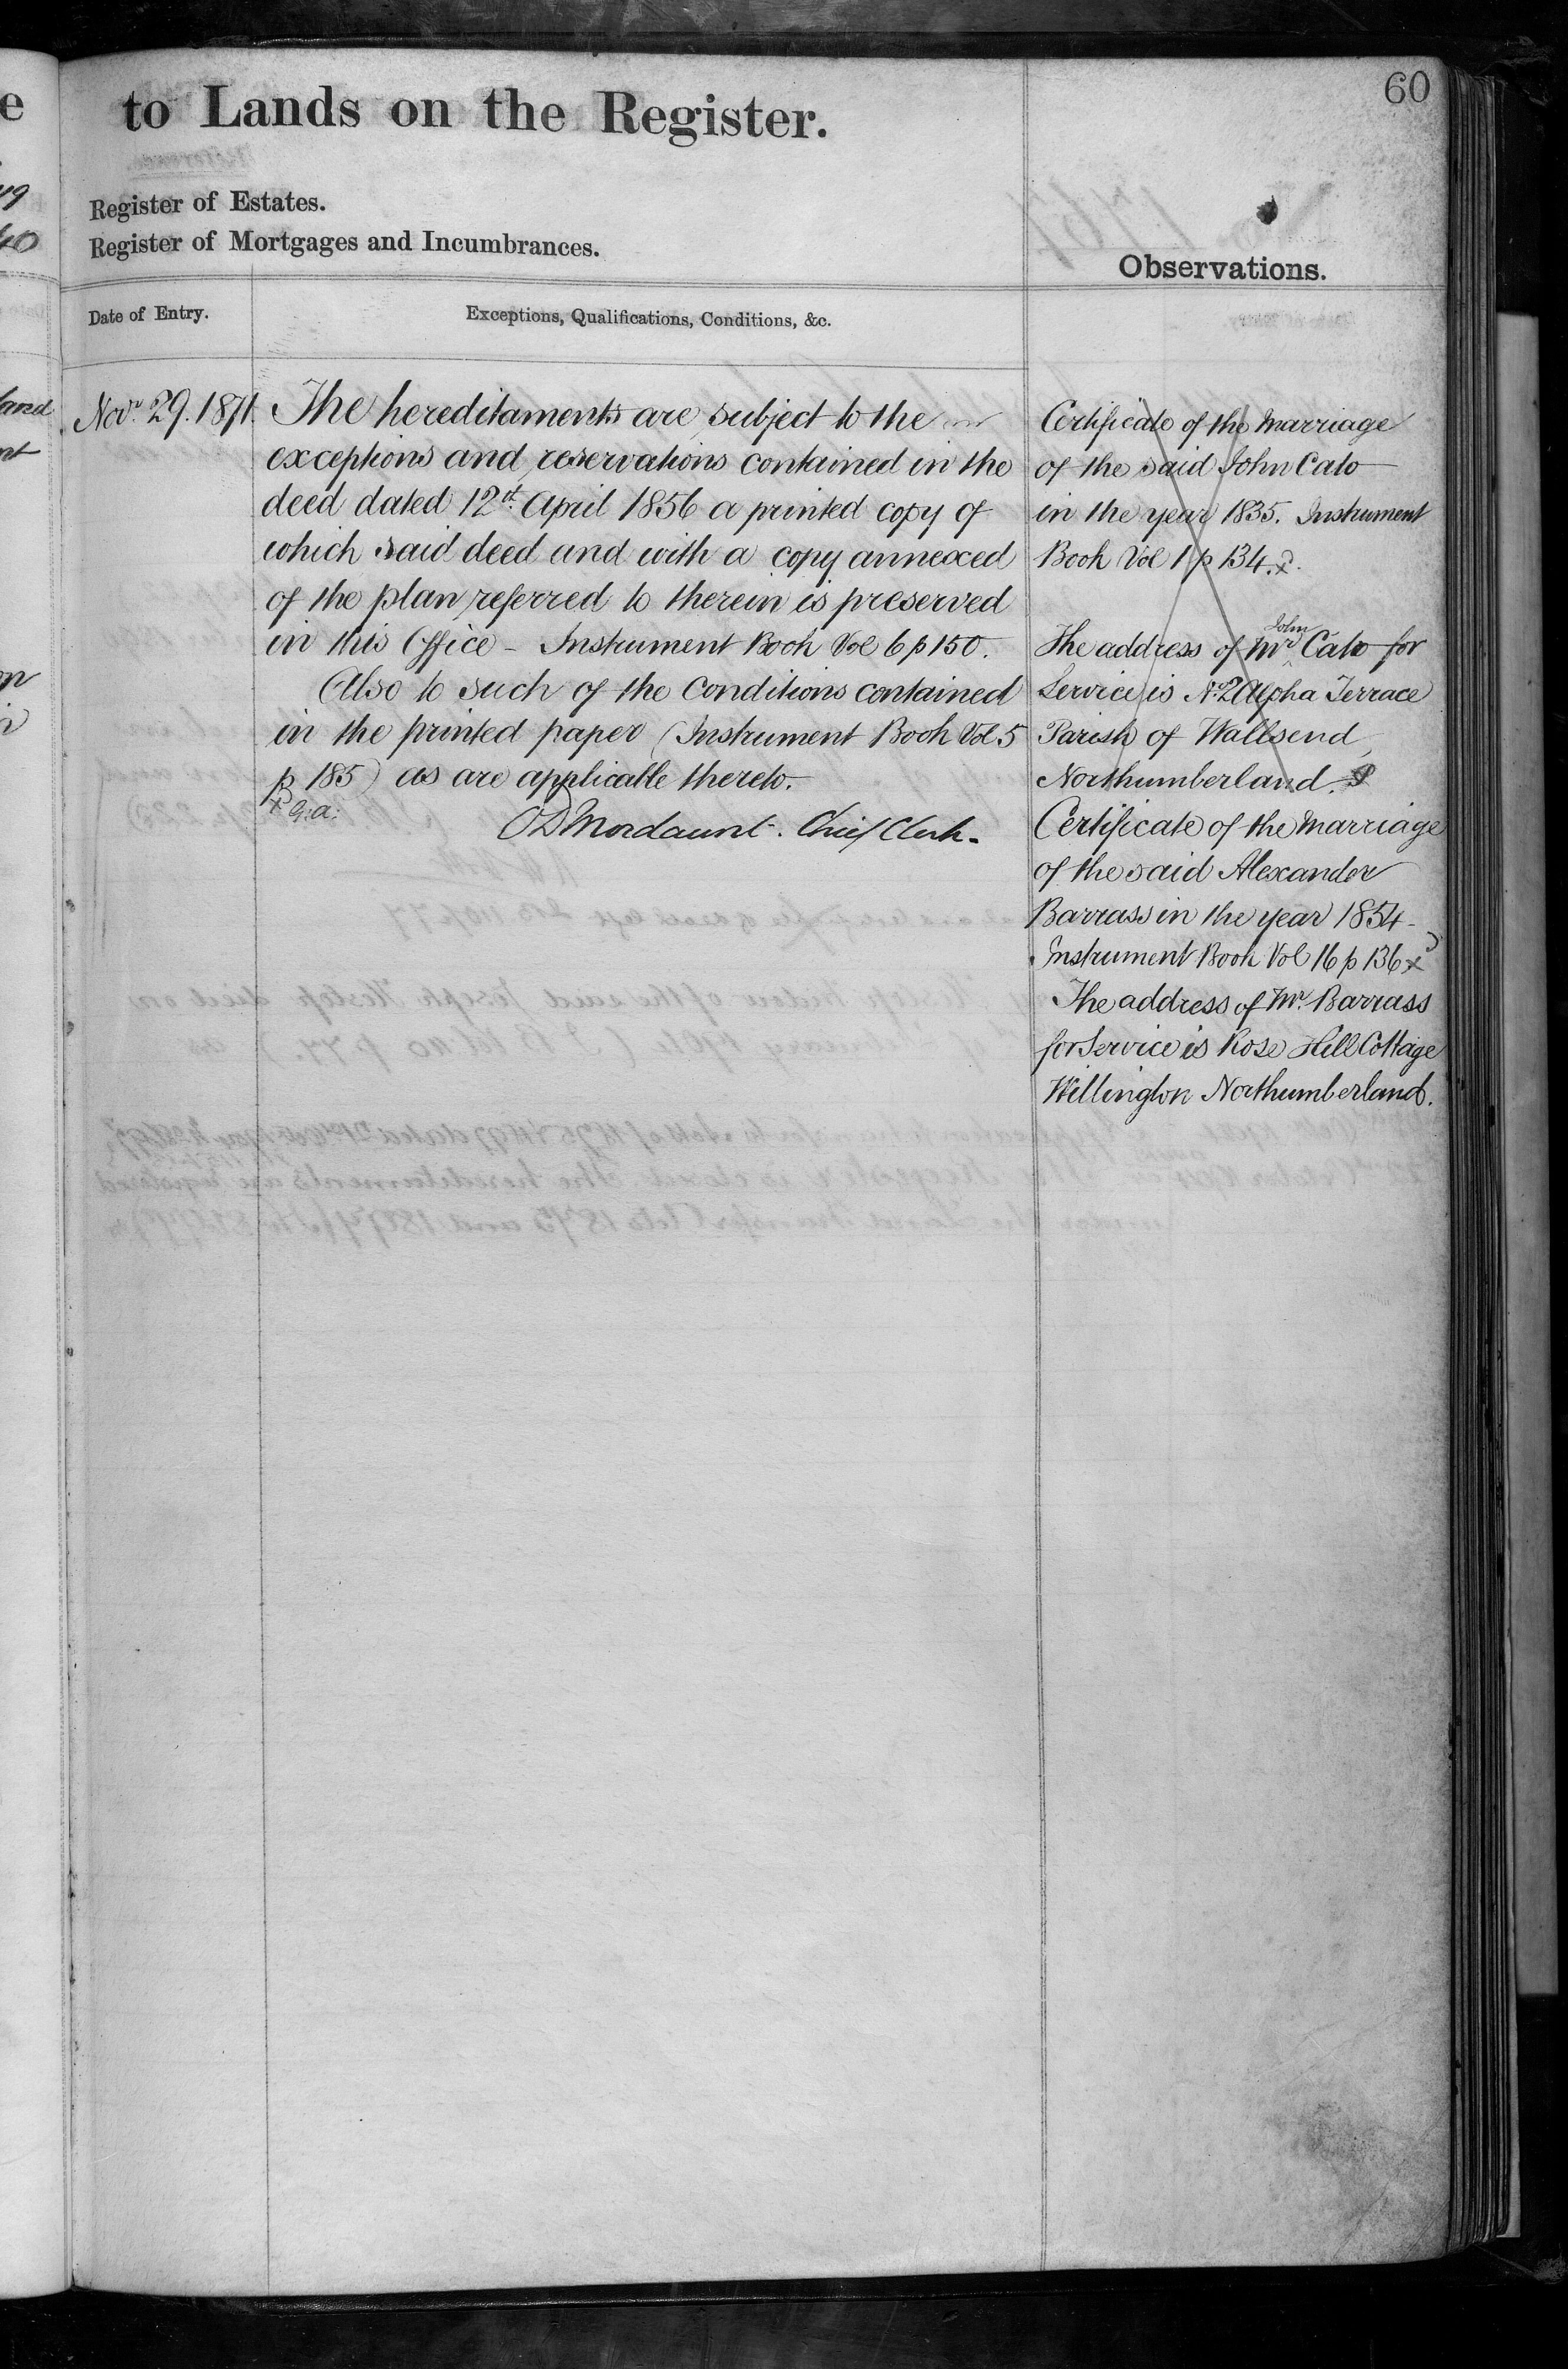 60
to Lands on the Register.
Register of Estates.
Register of Mortgages and Incumbrances.
Observations.
Date of Entry.
Exceptions, Qualifications, Conditions, &c.
Novr. 29. 1871.
The hereditaments are subject to the
exceptions and reservations contained in the
deed dated 12th. April 1856 a printed copy of
which said deed and with a copy annexed
of the plan referred to therein is preserved
in this Office - Instrument Book Vol 6 p 150.
Also to such of the Conditions contained
in the printed paper (Instrument Book Vol 5
p 185) as are applicable thereto.
G.a.
Mordaunt. Chief Clerk.
Certificate of the Marriage
of the said John Cato
in the year 1835. Instrument
Book Vol 1 p 134.
The address of Mr John Cato for
Service is No. 2 Alpha Terrace
Parish of Wallsend,
Northumberland.
Certificate of the Marriage
of the said Alexander
Barrass in the year 1854 -
Instrument Book Vol 16 p 136
The address of Mr. Barrass
for Service is Rose Hill Cottage
Willington Northumberland.